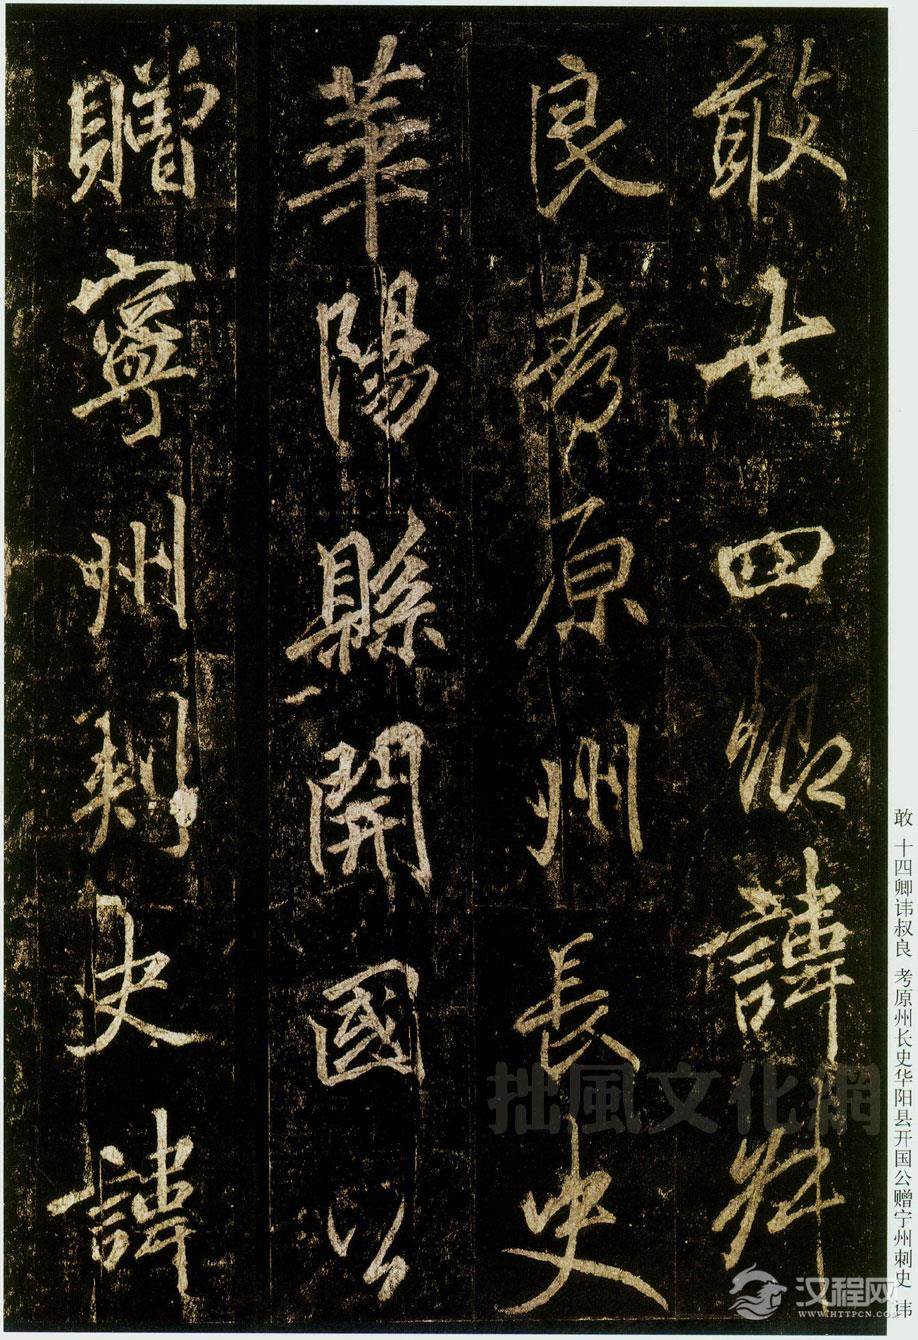 敢士四卿諱叔
良考原州長史
華陽縣開國公
贈寧州刺史諱
敢 十四卿讳叔良 考原州长史华阳县开国公赠宁州刺史 讳
拙風文化網
汉程网
WWW.HTTPCN.COM